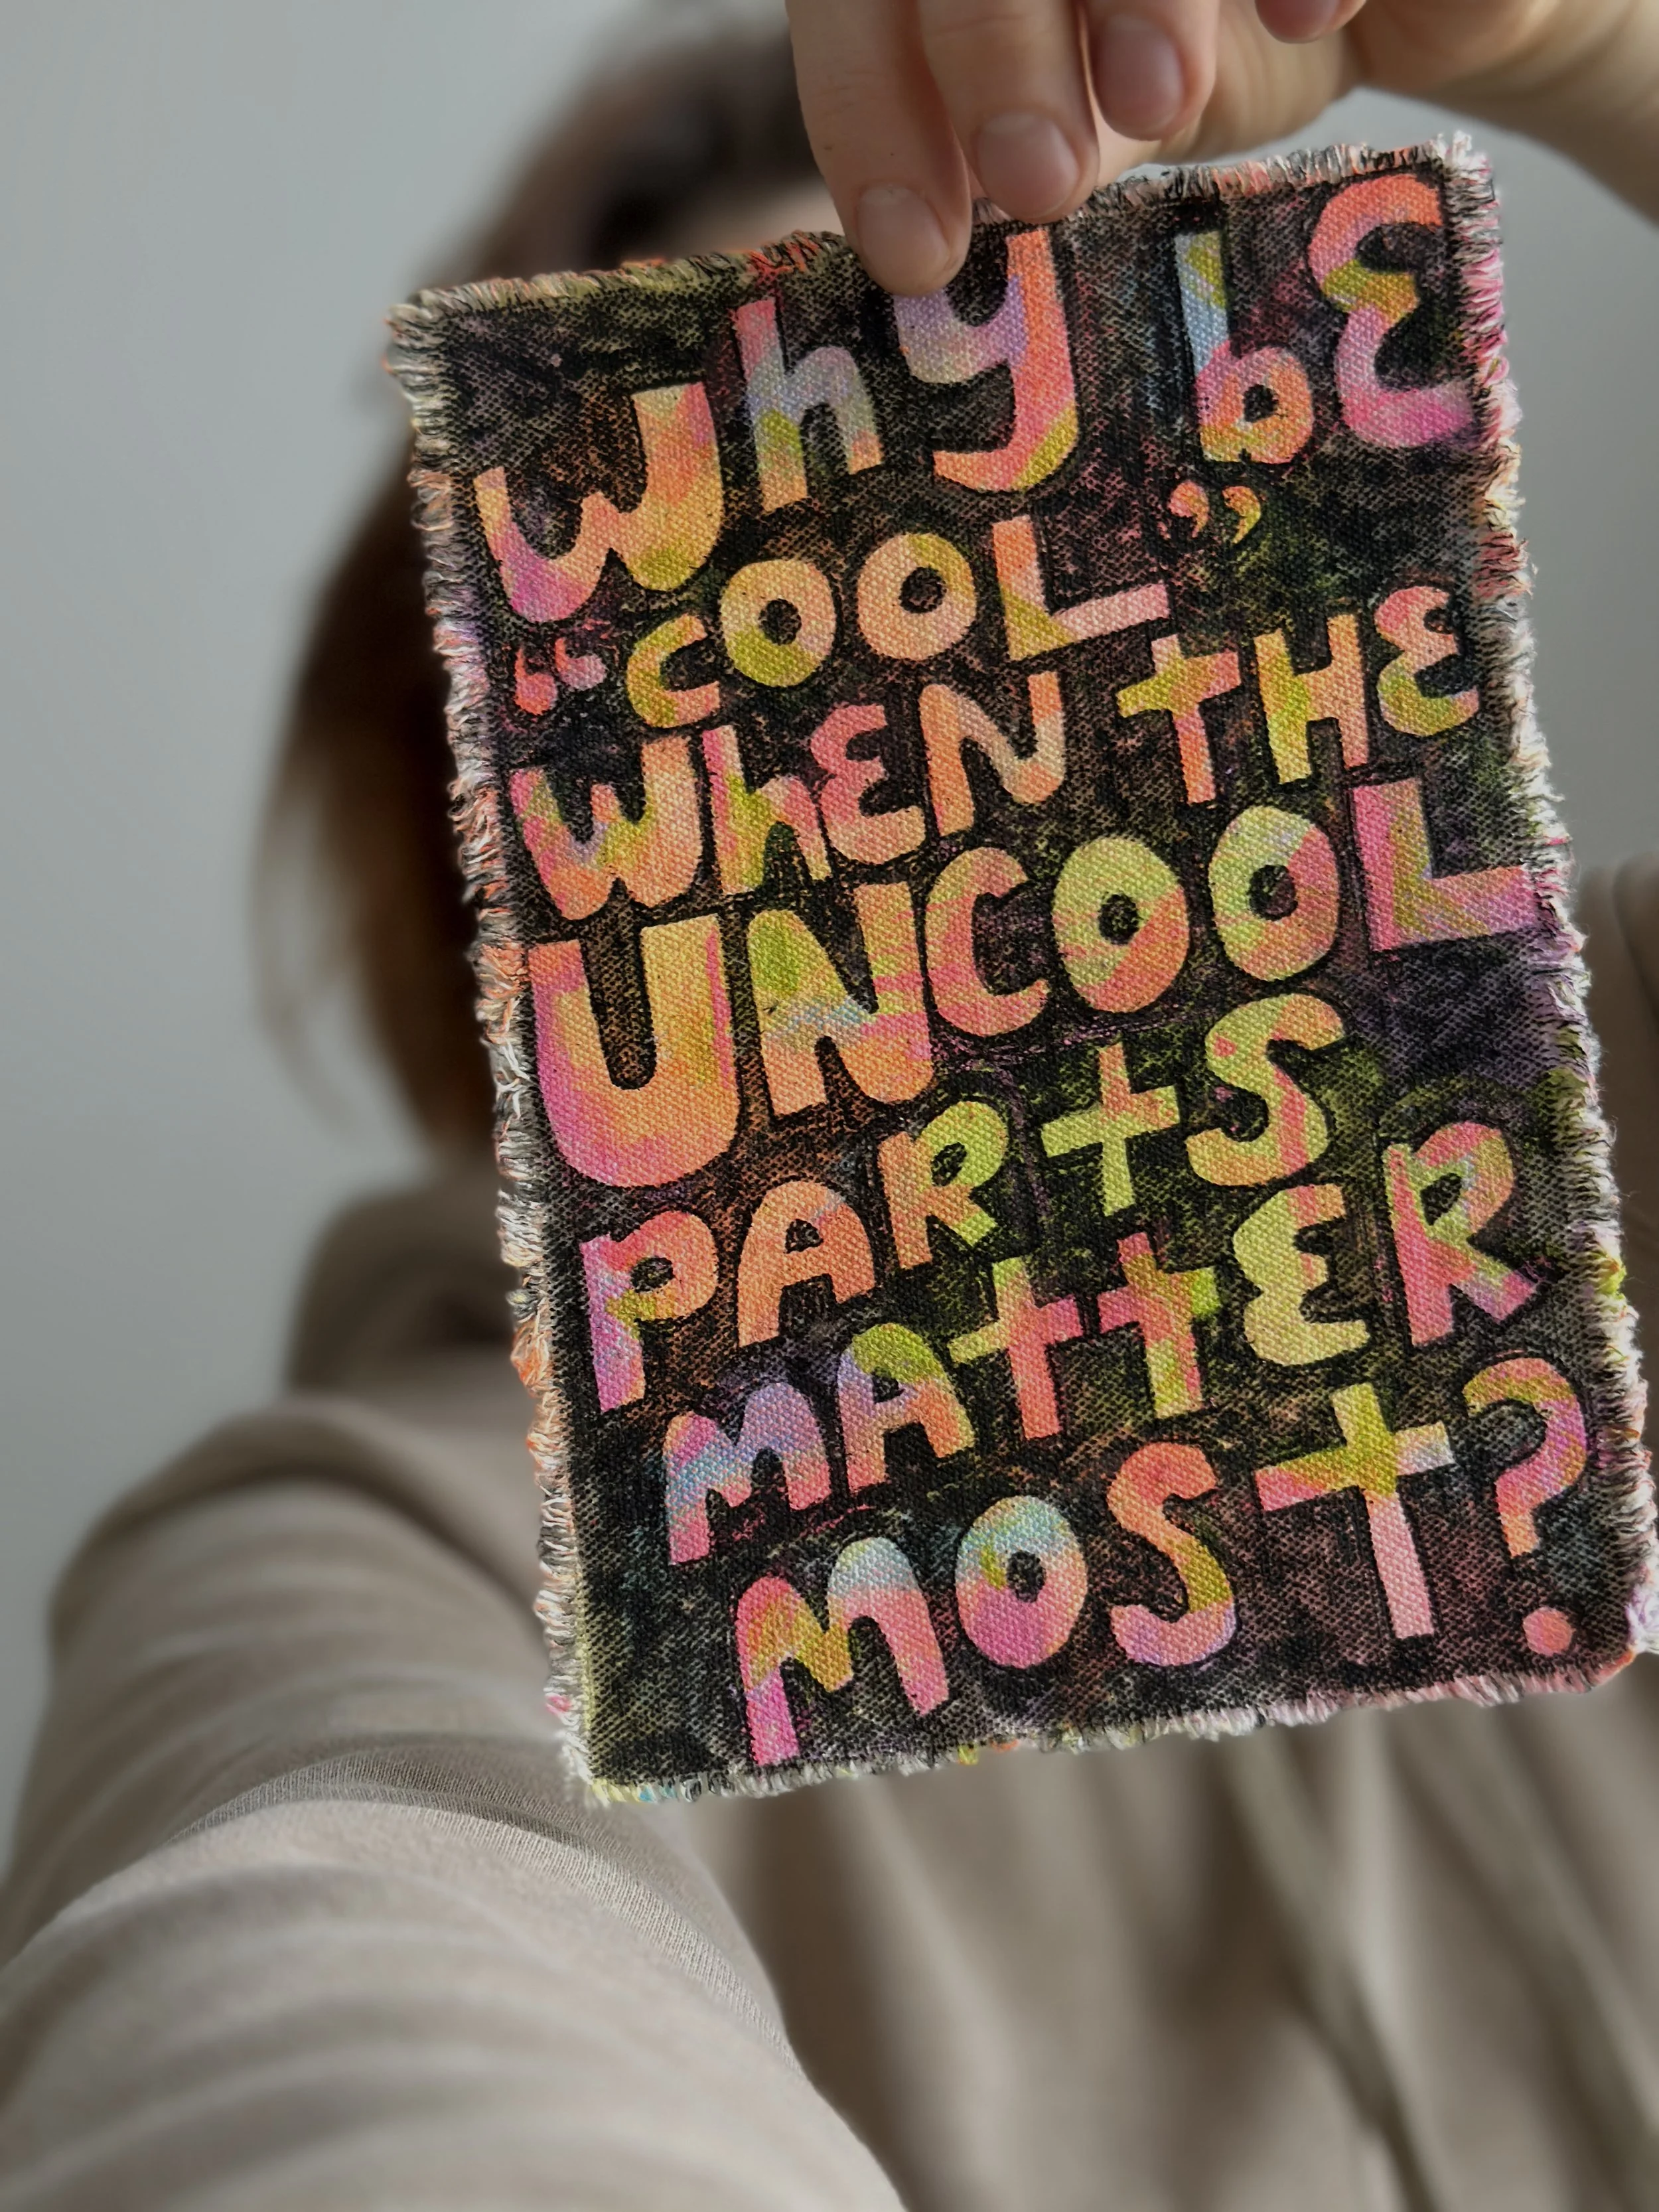 Why bE
“COOL”
WhEN tHE
UNCOOL
PARtS
MAttER
MOSt?